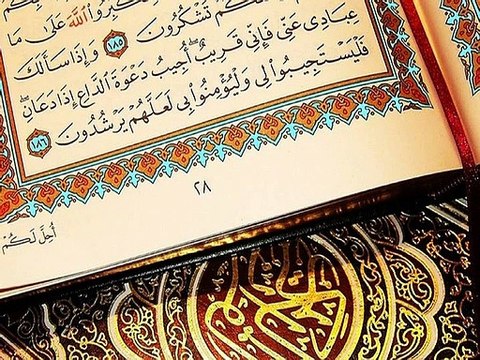 عَلَىٰ مَا
تَشْكُرُونَ ١٨٥ وَإِذَا سَأَلَكَ
عِبَادِى عَنِّى فَإِنِّى قَرِيبٌ ۖ أُجِيبُ دَعْوَةَ ٱلدَّاعِ إِذَا دَعَانِ ۖ
فَلْيَسْتَجِيبُوا۟ لِى وَلْيُؤْمِنُوا۟ بِى لَعَلَّهُمْ يَرْشُدُونَ ١٨٦
٢٨
أُحِلَّ لَكُمْ